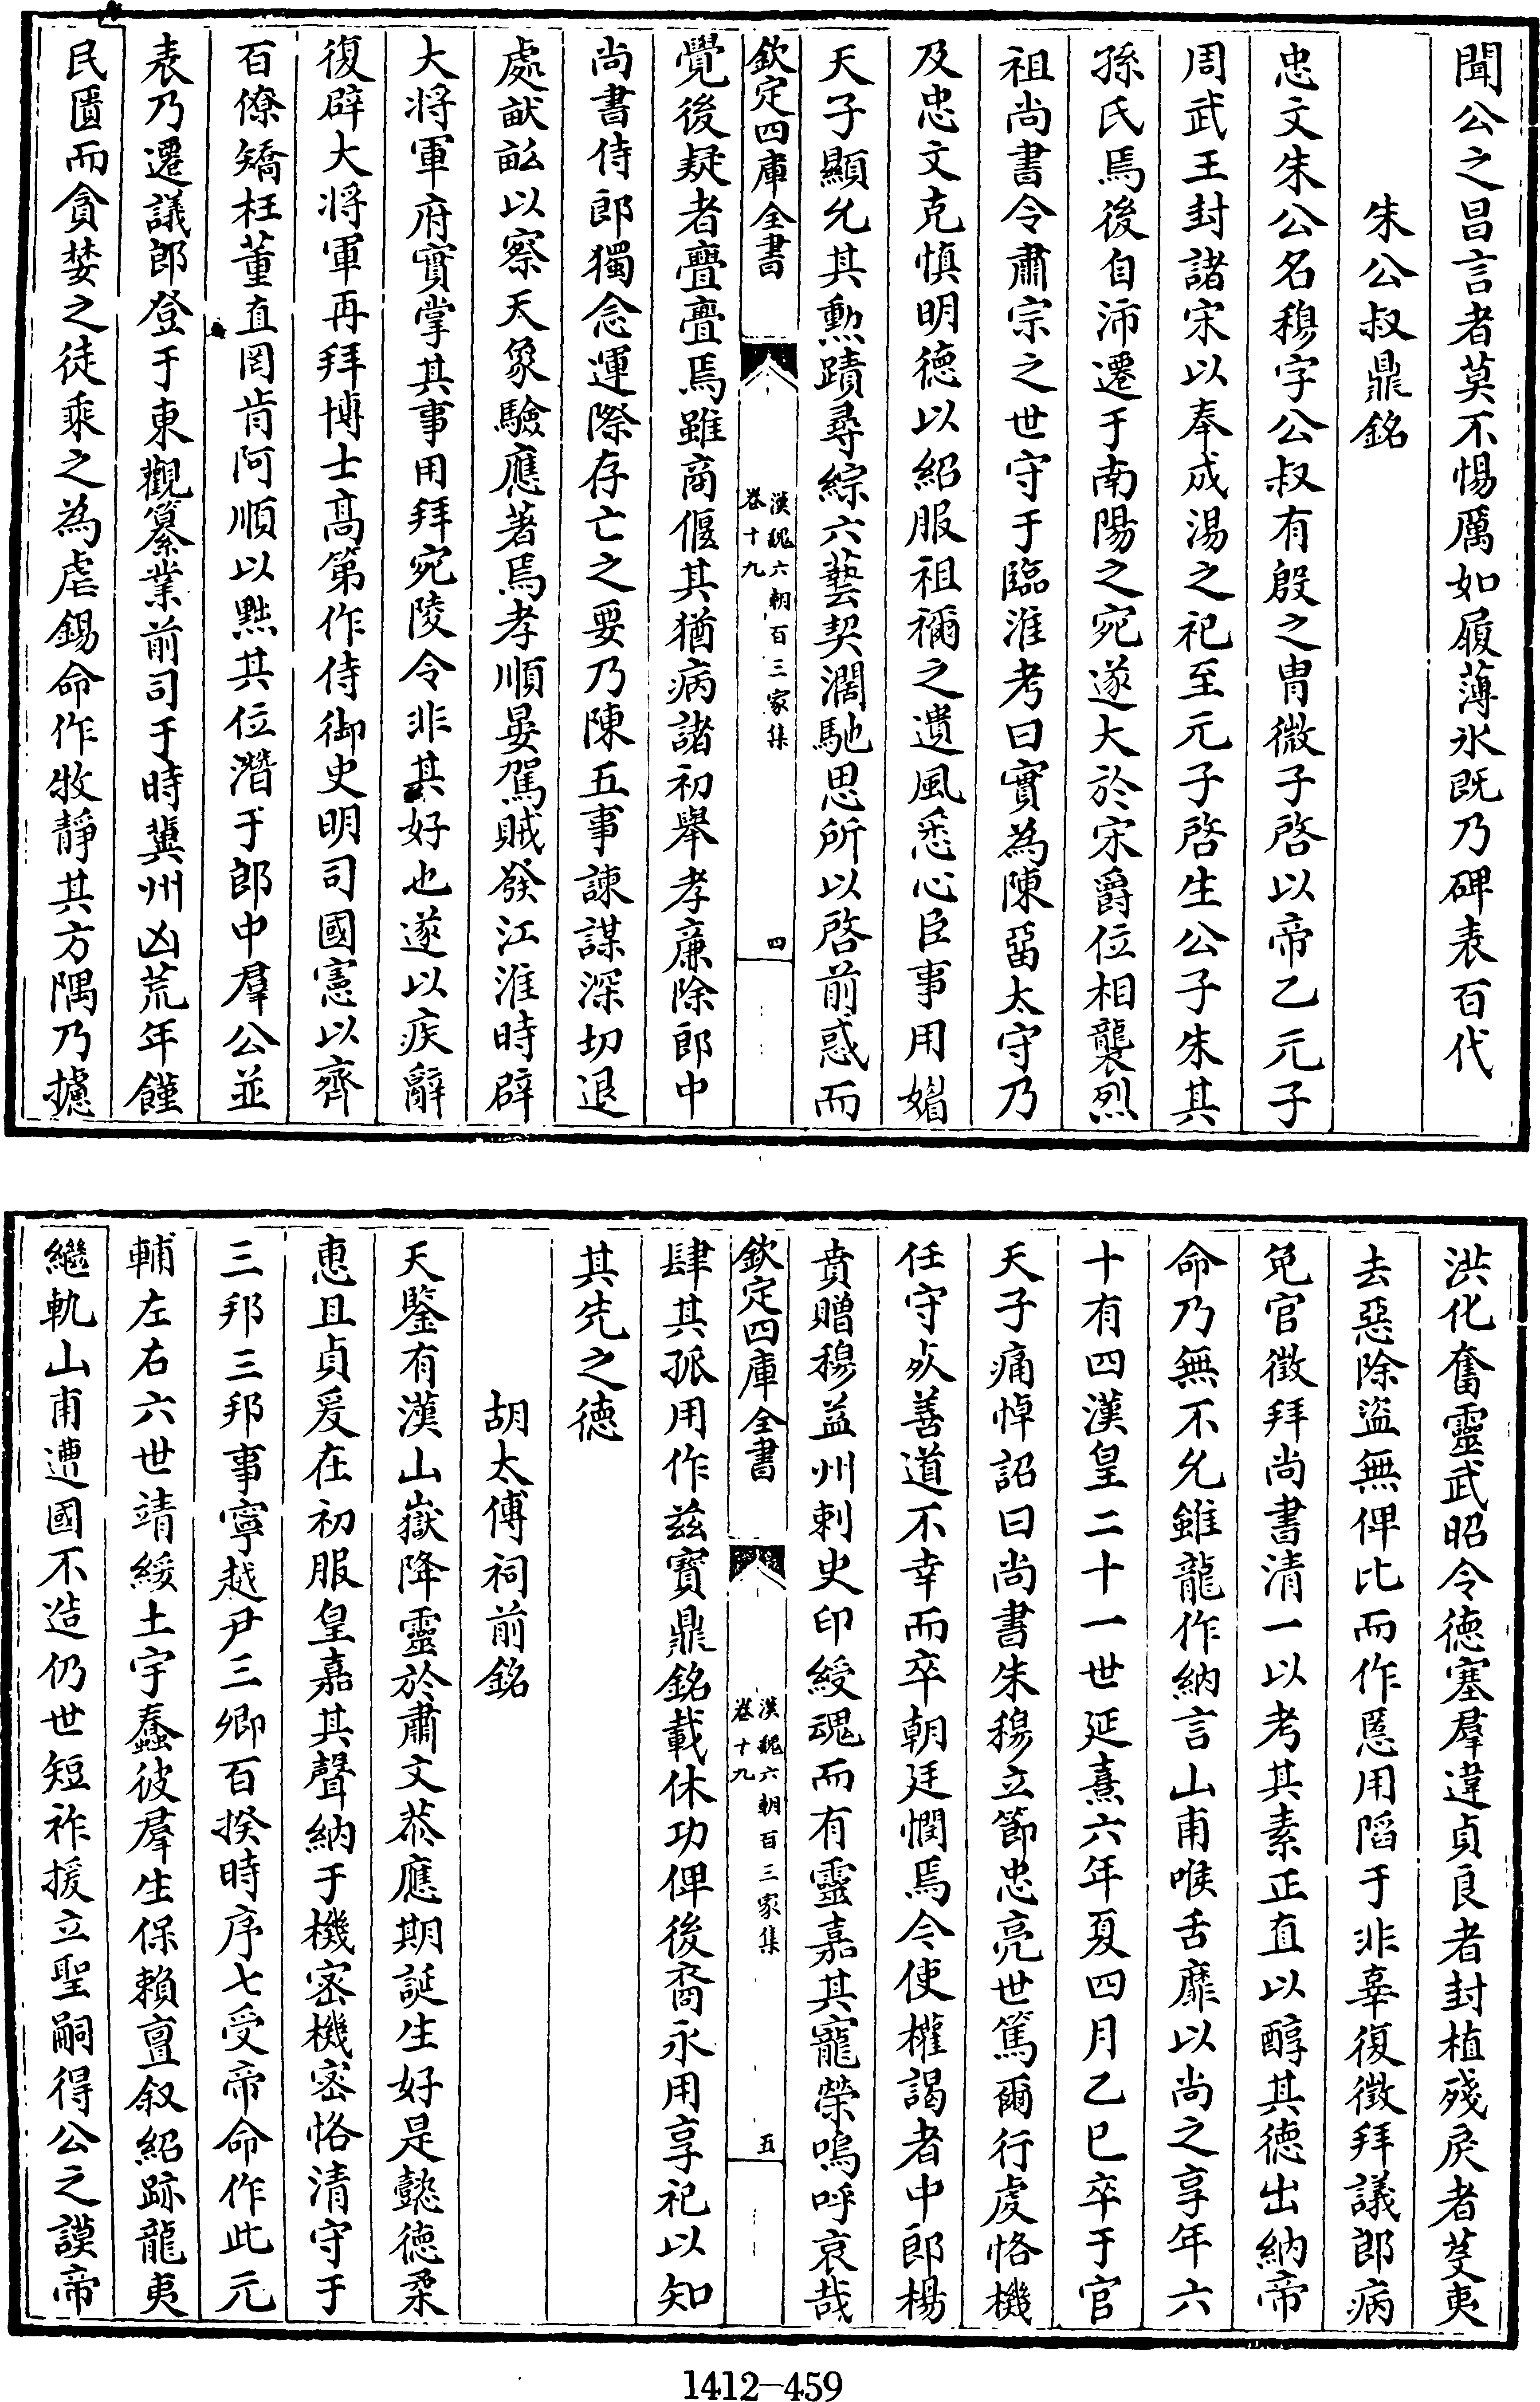 聞公之昌言者莫不惕厲如履薄氷既乃碑表百代
朱公叔鼎銘
忠文朱公名穆字公叔有殷之胄微子啓以帝乙元子
周武王封諸宋以奉成湯之祀至元子啓生公子朱其
孫氏焉後自沛遷于南陽之宛遂大於宋爵位相襲烈
祖尚書令肅宗之世守于臨淮考曰實為陳留太守乃
及忠文克慎明德以紹服祖禰之遺風悉心臣事用媚
天子顯允其勲蹟尋綜六藝契濶馳思所以啓前惑而
欽定四庫全書
漢魏六朝百三家集
卷十九
四
覺後疑者亹亹焉雖商偃其猶病諸初舉孝亷除郎中
尚書侍郎獨念運際存亡之要乃陳五事諫謀深切退
處畎畝以察天象驗應著焉孝順晏駕賊發江淮時辟
大將軍府實掌其事用拜宛陵令非其好也遂以疾辭
復辟大將軍再拜博士髙第作侍御史明司國憲以齊
百僚矯枉董直罔肯阿順以黜其位潛于郎中羣公並
表乃遷議郎登于東觀纂業前司于時冀州凶荒年饉
民匱而貪婪之徒乘之為虐錫命作牧靜其方隅乃攄
洪化奮靈武昭令德塞羣違貞良者封植殘戾者芟夷
去惡除盜無俾比而作慝用䧟于非辜復徵拜議郎病
免官徵拜尚書清一以考其素正直以醇其德出納帝
命乃無不允雖龍作納言山甫喉舌靡以尚之享年六
十有四漢皇二十一世延熹六年夏四月乙巳卒于官
天子痛悼詔曰尚書朱穆立節忠亮世篤爾行虔恪機
任守死善道不幸而卒朝廷憫焉今使權謁者中郎楊
賁贈穆益州刺史印綬魂而有靈嘉其寵榮嗚呼哀哉
欽定四庫全書
漢魏六朝百三家集
卷十九
五
肆其孤用作兹寶鼎銘載休功俾後裔永用享祀以知
其先之德
胡太傅祠前銘
天鑒有漢山嶽降靈於肅文恭應期誕生好是懿德柔
惠且貞爰在初服皇嘉其聲納于機密機密恪清守于
三邦三邦事寧越尹三卿百揆時序七受帝命作此元
輔左右六世靖綏土宇蠢彼羣生保賴亶叙紹跡龍夷
繼軌山甫遭國不造仍世短祚援立聖嗣得公之謨帝
1412—459